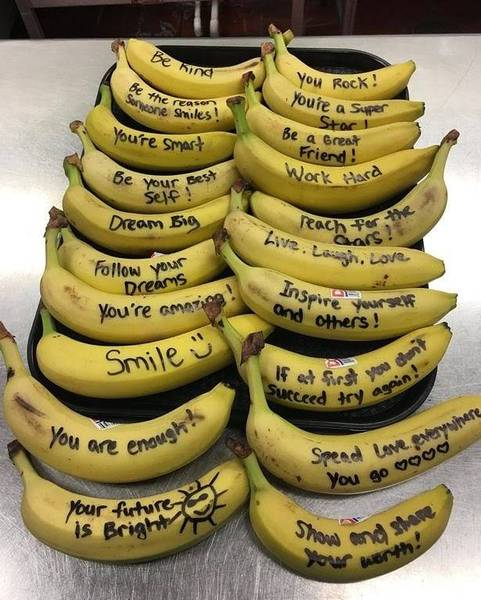 Be Kind
Be the reason
Someone Smiles!
You're Smart
Be Your Best
Self!
Dream Big
Follow your
Dreams
You're amazing!
Smile
You are enough!
Your future
is Bright
You Rock!
You're a Super
Star!
Be a Great
Friend!
Work Hard
Reach for the
Stars!
Live. Laugh. Love
Inspire Yourself
and others!
If at first you don't
succeed try again!
Spread Love everywhere
You go
Show and share
your worth!